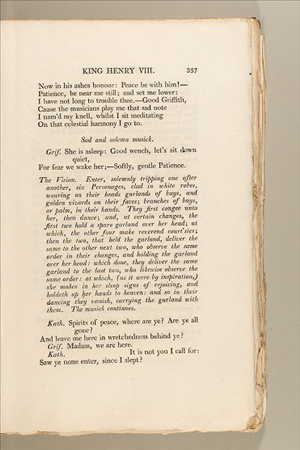 KING HENRY VIII. 357
Now in his ashes honour: Peace be with him!—
Patience, be near me still; and set me lower:
I have not long to trouble thee.—Good Griffith,
Cause the musicians play me that sad note
I nam'd my knell, whilst I sit meditating
On that celestial harmony I go to.
Sad and solemn musick.
Grif. She is asleep: Good wench, let's sit down
quiet,
For fear we wake her;—Softly, gentle Patience.
The Vision. Enter, solemnly tripping one after
another, six Personages, clad in white robes,
wearing on their heads garlands of bays, and
golden vizards on their faces; branches of bays,
or palm, in their hands. They first congee unto
her, then dance; and, at certain changes, the
first two hold a spare garland over her head; at
which, the other four make reverend court'sies;
then the two, that held the garland, deliver the
same to the other next two, who observe the same
order in their changes, and holding the garland
over her head: which done, they deliver the same
garland to the last two, who likewise observe the
same order: at which, (as it were by inspiration,)
she makes in her sleep signs of rejoicing, and
holdeth up her hands to heaven: and so in their
dancing they vanish, carrying the garland with
them. The musick continues.
Kath. Spirits of peace, where are ye? Are ye all
gone?
And leave me here in wretchedness behind ye?
Grif. Madam, we are here.
Kath. It is not you I call for:
Saw ye none enter, since I slept?